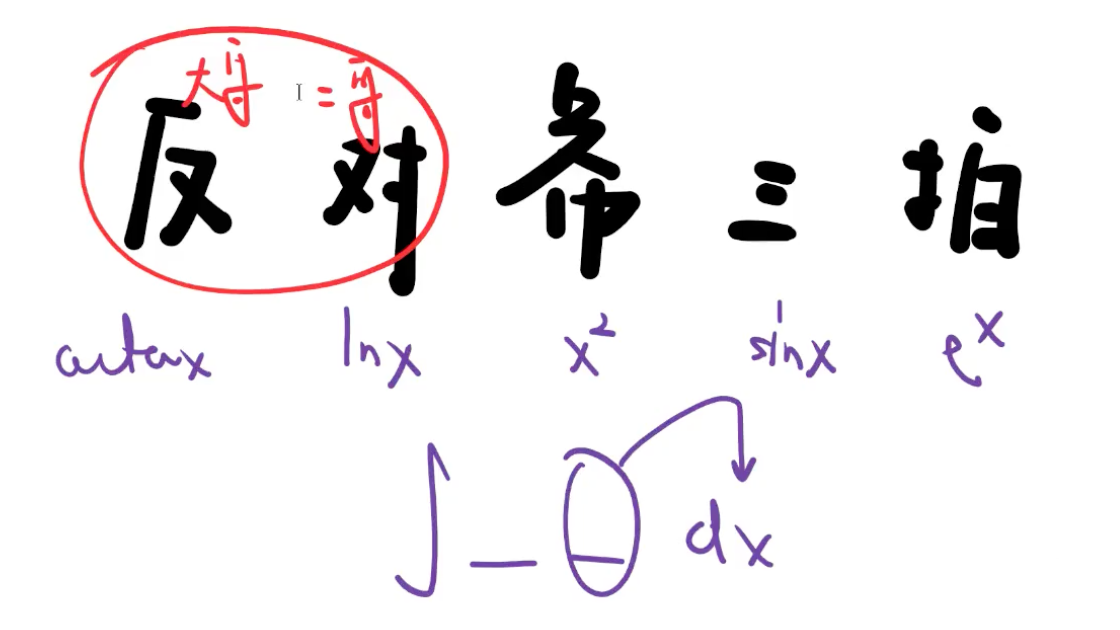 大哥 二哥
反 对 幂 三 指
arctanx lnx x² sinx eˣ
∫ _ _ dx